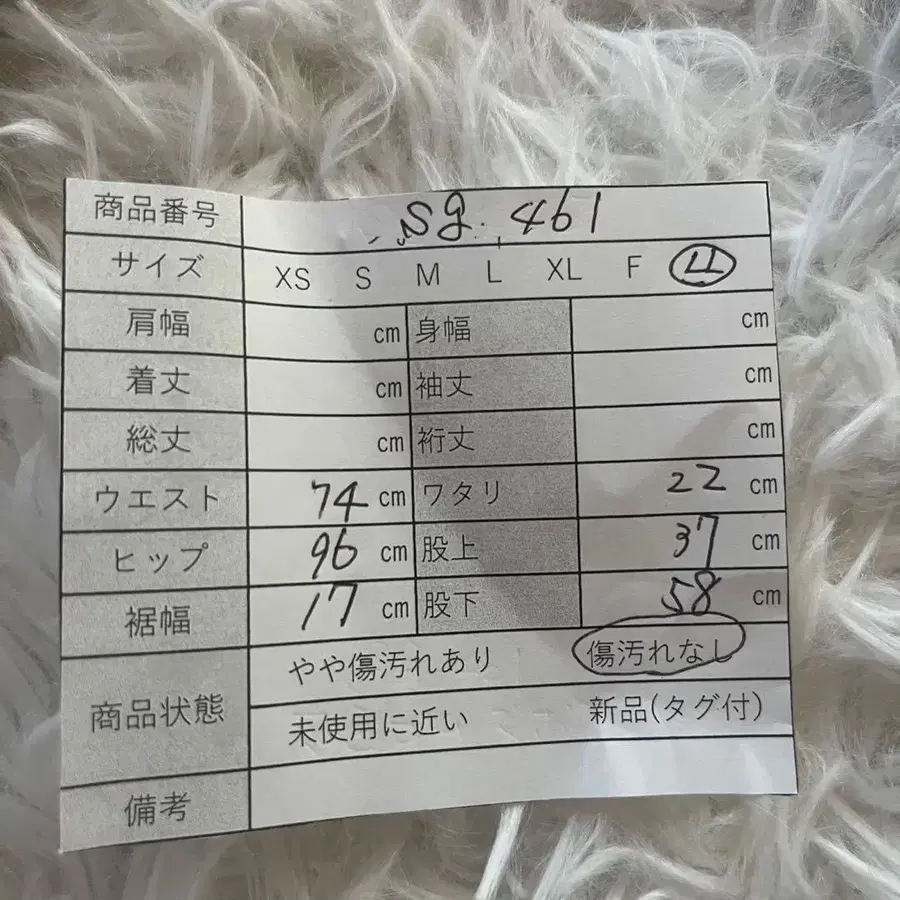 商品番号 sg 461
サイズ XS S M L XL F LL
肩幅 cm 身幅 cm
着丈 cm 袖丈 cm
総丈 cm 裄丈 cm
ウエスト 74 cm ワタリ 22 cm
ヒップ 96 cm 股上 37 cm
裾幅 17 cm 股下 58 cm
商品状態 やや傷汚れあり 傷汚れなし
未使用に近い 新品(タグ付)
備考